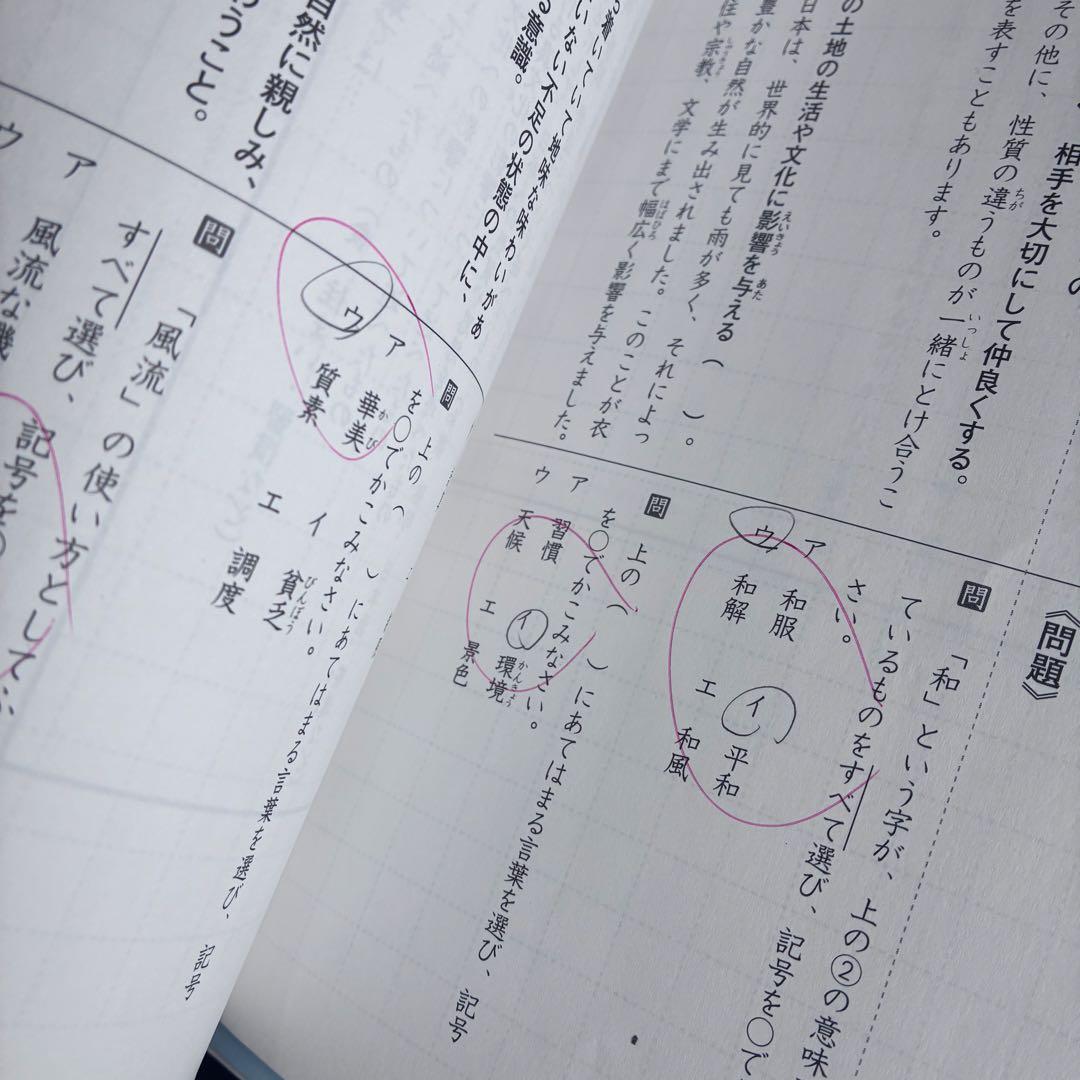 の
相手を大切にして仲良くする。
その他に、性質の違うものが一緒にとけ合うこ
を表すこともあります。
の土地の生活や文化に影響を与える（　）。
日本は、世界的に見ても雨が多く、それによっ
豊かな自然が生み出されました。このことが衣
住や宗教、文学にまで幅広く影響を与えました。
《問題》
問 「和」という字が、上の②の意味
ているものをすべて選び、記号を〇で
さい。
ア 和服
イ 平和
ウ 和解
エ 和風
問 上の（　）にあてはまる言葉を選び、記号
を〇でかこみなさい。
ア 習慣
イ 環境
ウ 天候
エ 景色
着いていて地味な味わいがあ
いない不足の状態の中に、
る意識。
自然に親しみ、
うこと。
問 上の（　）にあてはまる言葉を選び、記号
を〇でかこみなさい。
ア 華美
イ 貧乏
ウ 質素
エ 調度
問 「風流」の使い方として
すべて選び、記号を〇
ア 風流な機
ウ